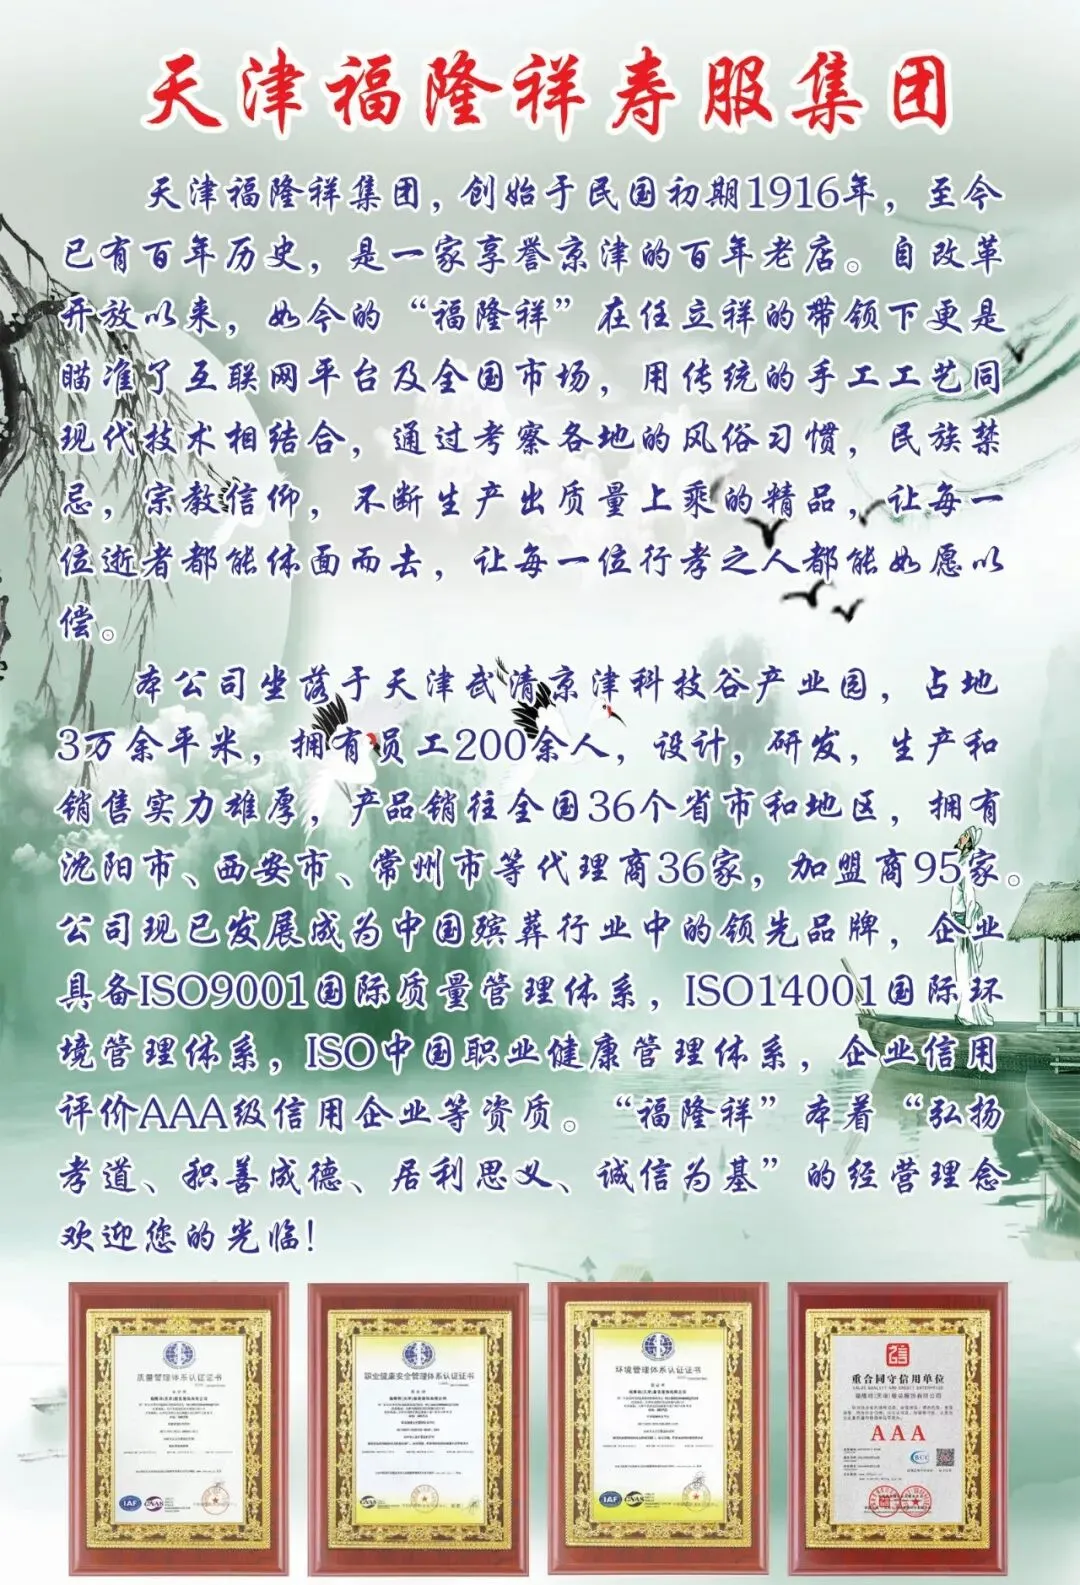 天津福隆祥寿服集团
天津福隆祥集团，创始于民国初期1916年，至今
已有百年历史，是一家享誉京津的百年老店。自改革
开放以来，如今的“福隆祥”在任立祥的带领下更是
瞄准了互联网平台及全国市场，用传统的手工工艺同
现代技术相结合，通过考察各地的风俗习惯，民族禁
忌，宗教信仰，不断生产出质量上乘的精品，让每一
位逝者都能体面而去，让每一位行孝之人都能如愿以
偿。
本公司坐落于天津武清京津科技谷产业园，占地
3万余平米，拥有员工200余人，设计，研发，生产和
销售实力雄厚，产品销往全国36个省市和地区，拥有
沈阳市、西安市、常州市等代理商36家，加盟商95家。
公司现已发展成为中国殡葬行业中的领先品牌，企业
具备ISO9001国际质量管理体系，ISO14001国际环
境管理体系，ISO中国职业健康管理体系，企业信用
评价AAA级信用企业等资质。“福隆祥”本着“弘扬
孝道、积善成德、居利思义、诚信为基”的经营理念
欢迎您的光临！
质量管理体系认证证书
IAF
CNAS
职业健康安全管理体系认证证书
CNAS
环境管理体系认证证书
IAF
CNAS
重合同守信用单位
AAA
BCC